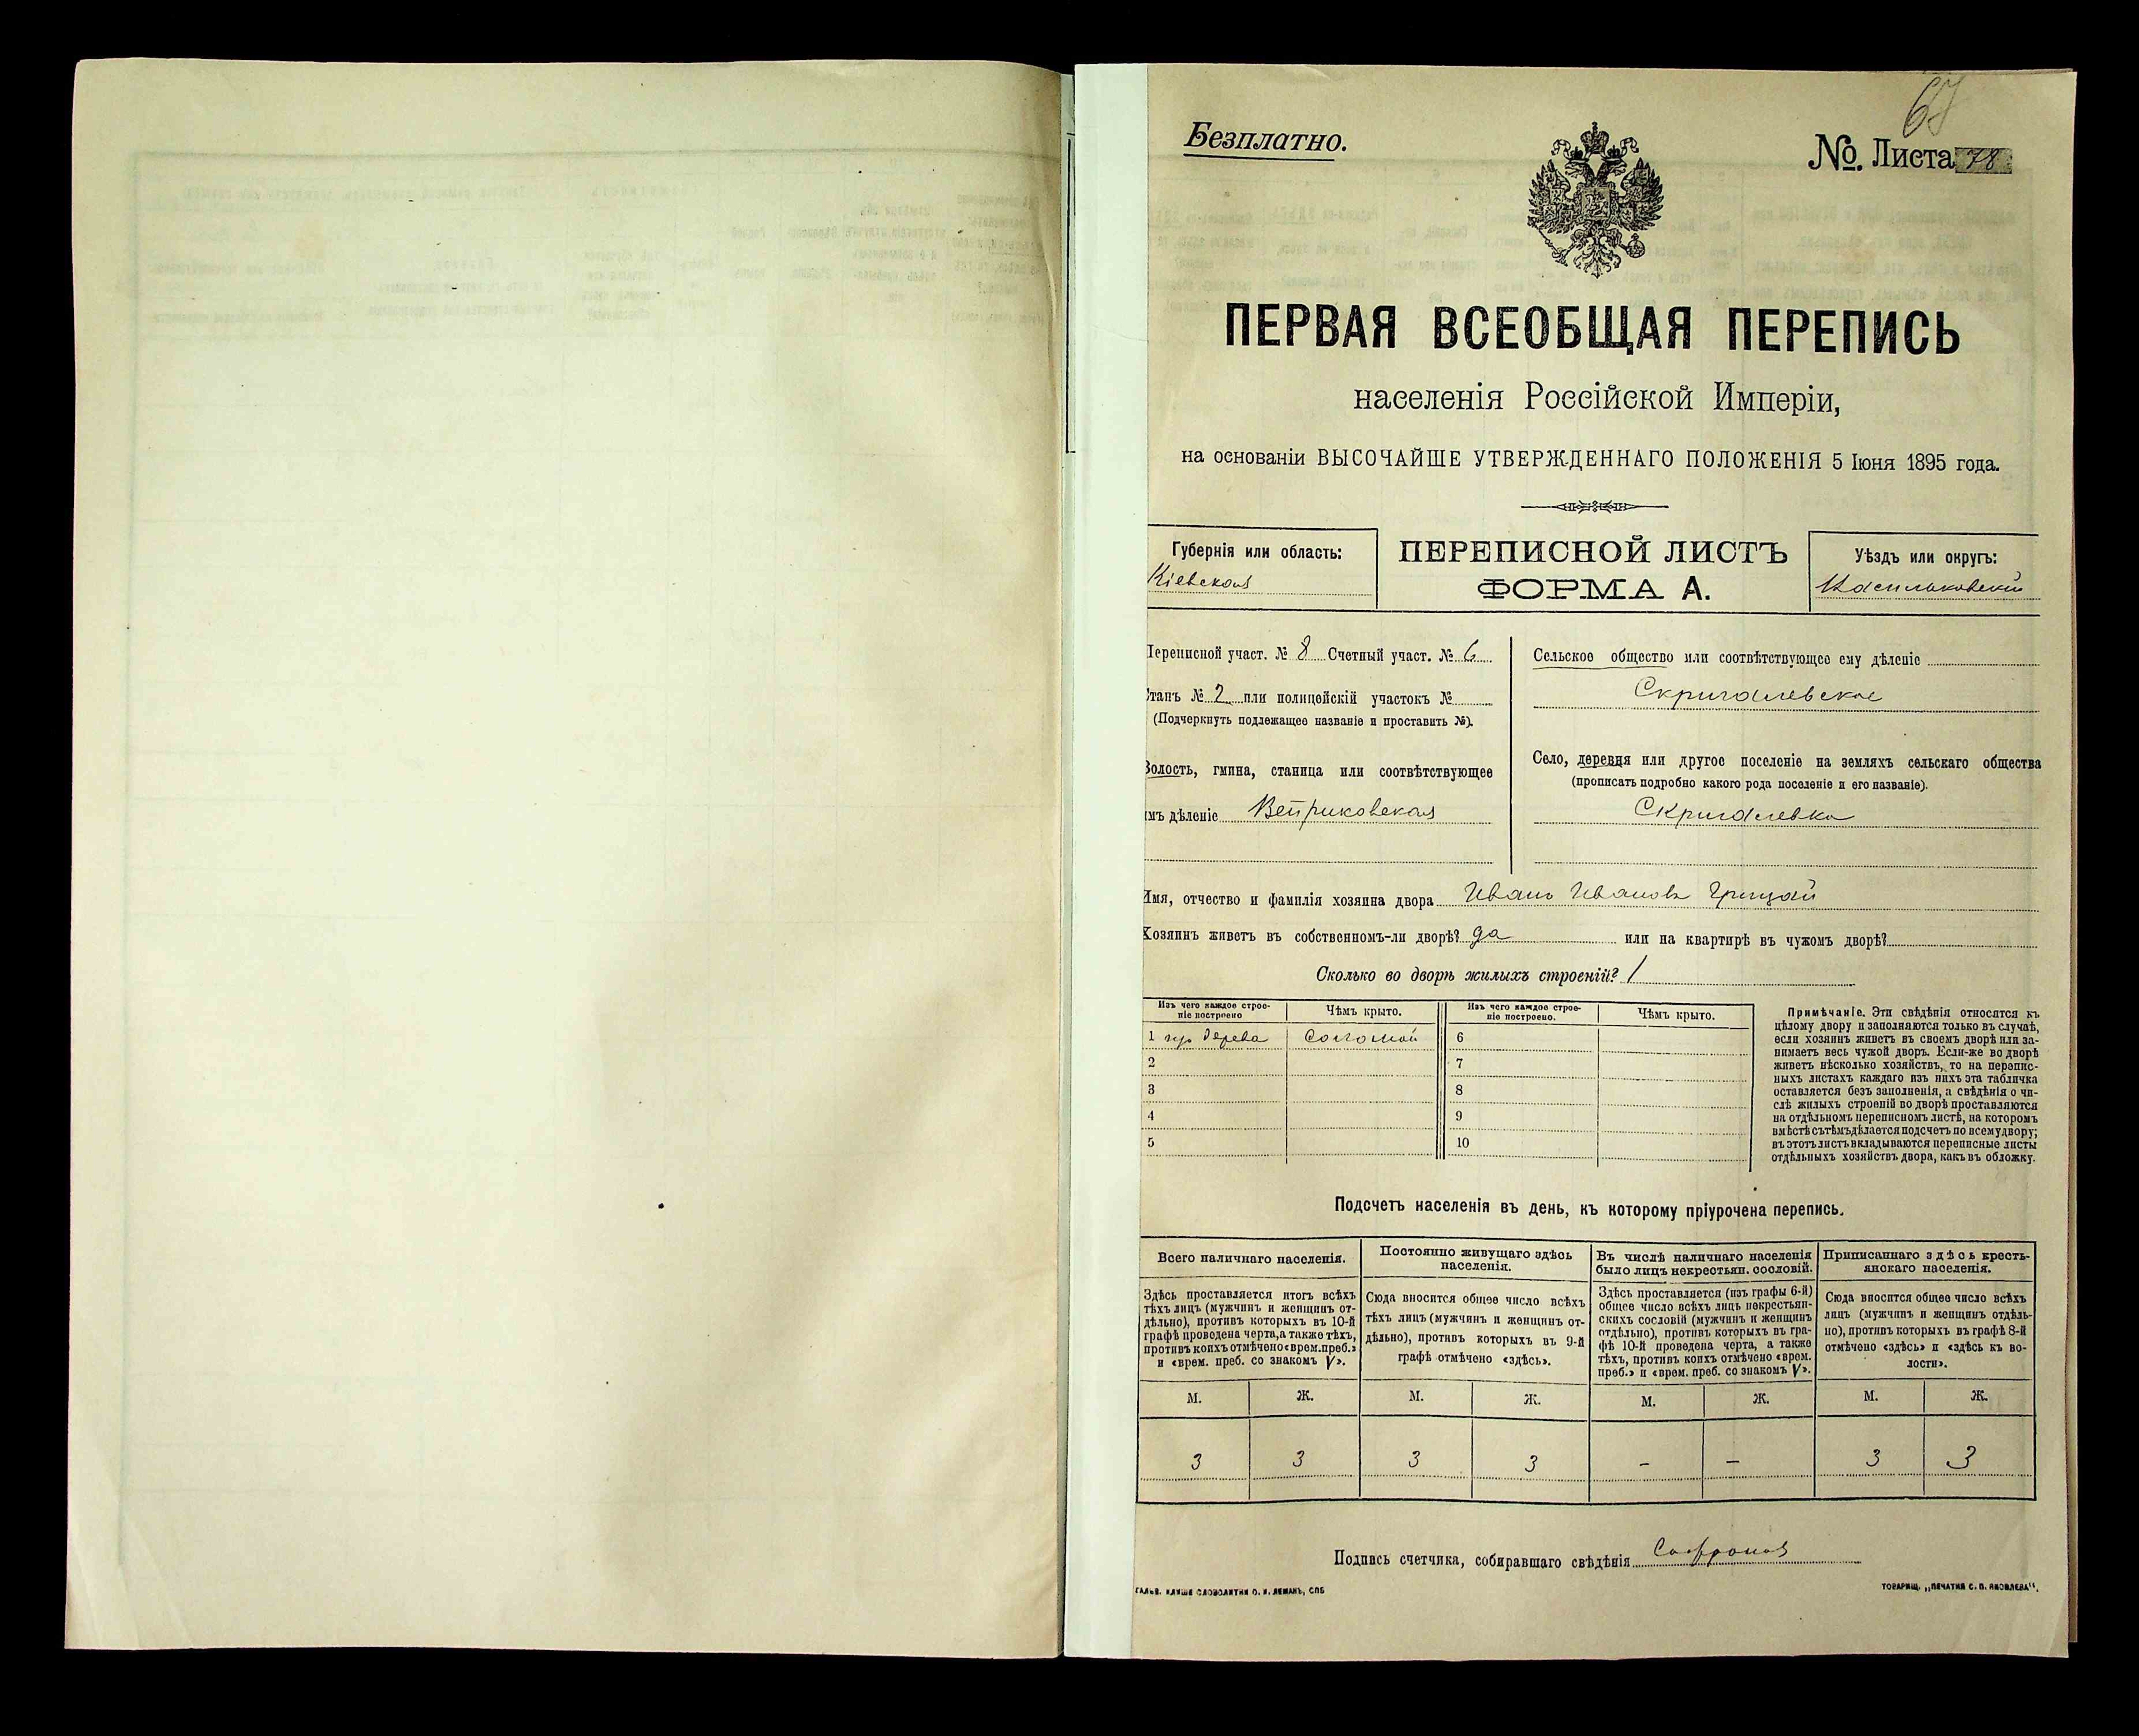 Безплатно.
№. Листа 78
ПЕРВАЯ ВСЕОБЩАЯ ПЕРЕПИСЬ
населенія Россійской Имперіи,
на основаніи ВЫСОЧАЙШЕ УТВЕРЖДЕННАГО ПОЛОЖЕНІЯ 5 Іюня 1895 года.
Губернія или область:
Кіевская
ПЕРЕПИСНОЙ ЛИСТЪ
ФОРМА А.
Уѣздъ или округъ:
Васильковскій
Переписной участ. № 8 Счетный участ. № 6
Станъ № 2 или полицейскій участокъ №
(Подчеркнуть подлежащее названіе и проставить №).
Волость, гмина, станица или соотвѣтствующее
имъ дѣленіе Веприковская
Сельское общество или соотвѣтствующее ему дѣленіе
Скригалевское
Село, деревня или другое поселеніе на земляхъ сельскаго общества
(прописать подробно какого рода поселеніе и его названіе).
Скригалевка
Имя, отчество и фамилія хозяина двора Иванъ Ивановъ Грицай
Хозяинъ живетъ въ собственномъ-ли дворѣ? да или на квартирѣ въ чужомъ дворѣ?
Сколько во дворѣ жилыхъ строеній? 1
Изъ чего каждое строе-
ніе построено
Чѣмъ крыто.
Изъ чего каждое строе-
ніе построено.
Чѣмъ крыто.
1 дерева Соломой
2
3
4
5
6
7
8
9
10
Примѣчаніе. Эти свѣдѣнія относятся къ
цѣлому двору и заполняются только въ случаѣ,
если хозяинъ живетъ въ своемъ дворѣ или за-
нимаетъ весь чужой дворъ. Если-же во дворѣ
живетъ нѣсколько хозяйствъ, то на перепис-
ныхъ листахъ каждаго изъ нихъ эта табличка
оставляется безъ заполненія, а свѣдѣнія о чи-
слѣ жилыхъ строеній во дворѣ проставляются
на отдѣльномъ переписномъ листѣ, на которомъ
вмѣстѣ съ тѣмъ дѣлается подсчетъ по всему двору;
въ этотъ листъ вкладываются переписные листы
отдѣльныхъ хозяйствъ двора, какъ въ обложку.
Подсчетъ населенія въ день, къ которому пріурочена перепись.
Всего наличнаго населенія.
Постоянно живущаго здѣсь
населенія.
Въ числѣ наличнаго населенія
было лицъ некрестьян. сословій.
Приписаннаго здѣсь кресть-
янскаго населенія.
Здѣсь проставляется итогъ всѣхъ
тѣхъ лицъ (мужчинъ и женщинъ от-
дѣльно), противъ которыхъ въ 10-й
графѣ проведена черта, а также тѣхъ,
противъ коихъ отмѣчено «врем. преб.»
и «врем. преб. со знакомъ V».
Сюда вносится общее число всѣхъ
тѣхъ лицъ (мужчинъ и женщинъ от-
дѣльно), противъ которыхъ въ 9-й
графѣ отмѣчено «здѣсь».
Здѣсь проставляется (изъ графы 6-й)
общее число всѣхъ лицъ некрестьян-
скихъ сословій (мужчинъ и женщинъ
отдѣльно), противъ которыхъ въ гра-
фѣ 10-й проведена черта, а также
тѣхъ, противъ коихъ отмѣчено «врем.
преб.» и «врем. преб. со знакомъ V».
Сюда вносится общее число всѣхъ
лицъ (мужчинъ и женщинъ отдѣль-
но), противъ которыхъ въ графѣ 8-й
отмѣчено «здѣсь» и «здѣсь къ во-
лости».
М. Ж. М. Ж. М. Ж. М. Ж.
3 3 3 3 – – 3 3
Подпись счетчика, собиравшаго свѣдѣнія
ГАЛЬВ. КЛИШЕ СЛОВОЛИТНИ О. И. ЛЕМАНЪ, СПБ
ТОВАРИЩ. „ПЕЧАТНЯ С. П. ЯКОВЛЕВА".